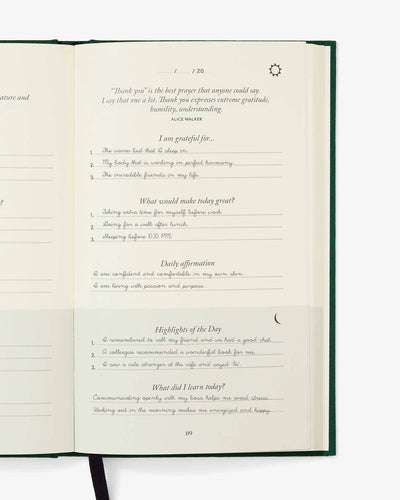 ature and
?
/ / 20
"Thank you" is the best prayer that anyone could say.
I say that one a lot. Thank you expresses extreme gratitude,
humility, understanding.
ALICE WALKER
I am grateful for...
1. The warm bed that I sleep in.
2. My body that is working in perfect harmony.
3. The incredible friends in my life.
What would make today great?
1. Taking extra time for myself before work.
2. Going for a walk after lunch.
3. Sleeping before 10:30 PM.
Daily affirmation
I am confident and comfortable in my own skin.
I am living with passion and purpose.
Highlights of the Day
1. I remembered to call my friend and we had a good chat.
2. A colleague recommended a wonderful book for me.
3. I saw a cute stranger at the cafe and said "Hi".
What did I learn today?
Communicating openly with my boss helps me avoid stress.
Working out in the morning makes me energized and happy.
119